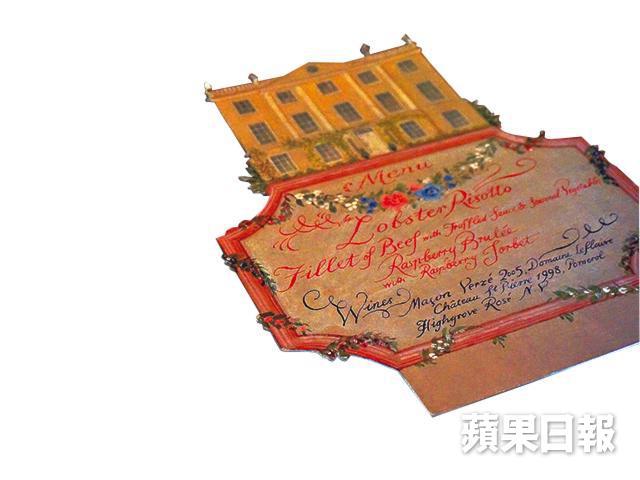 Menu
Lobster Risotto
Fillet of Beef with Truffled Sauce & Steamed Vegetables
Raspberry Brulée
with Raspberry Sorbet
Wines Maçon Verzé 2005, Domaine Leflaive
Château St Pierre 1998, Pomerol
Highgrove Rosé N.V
蘋果日報